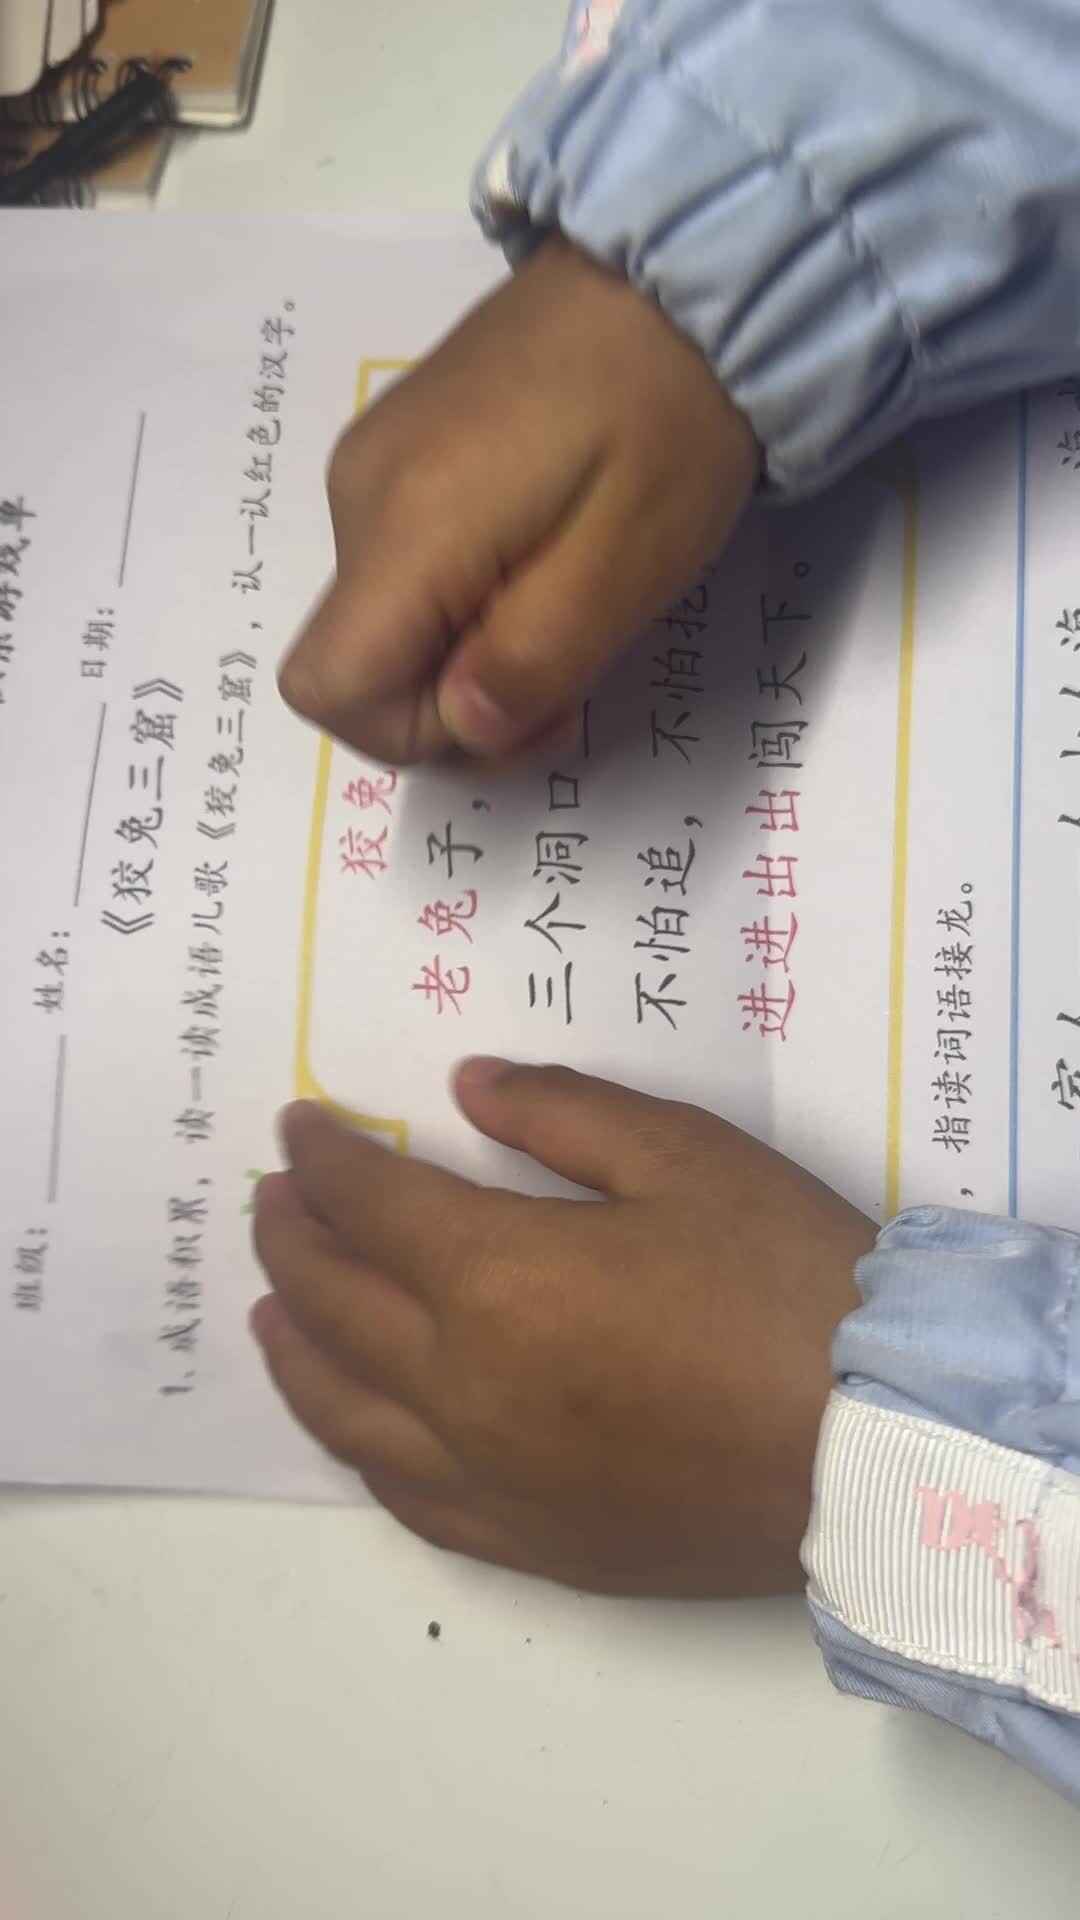 游戏单
班级： 姓名： 日期：
《狡兔三窟》
1、成语积累，读一读成语儿歌《狡兔三窟》，认一认红色的汉字。
狡兔
老兔子，
三个洞口一
不怕追，不怕挖
进进出出闯天下。
，指读词语接龙。